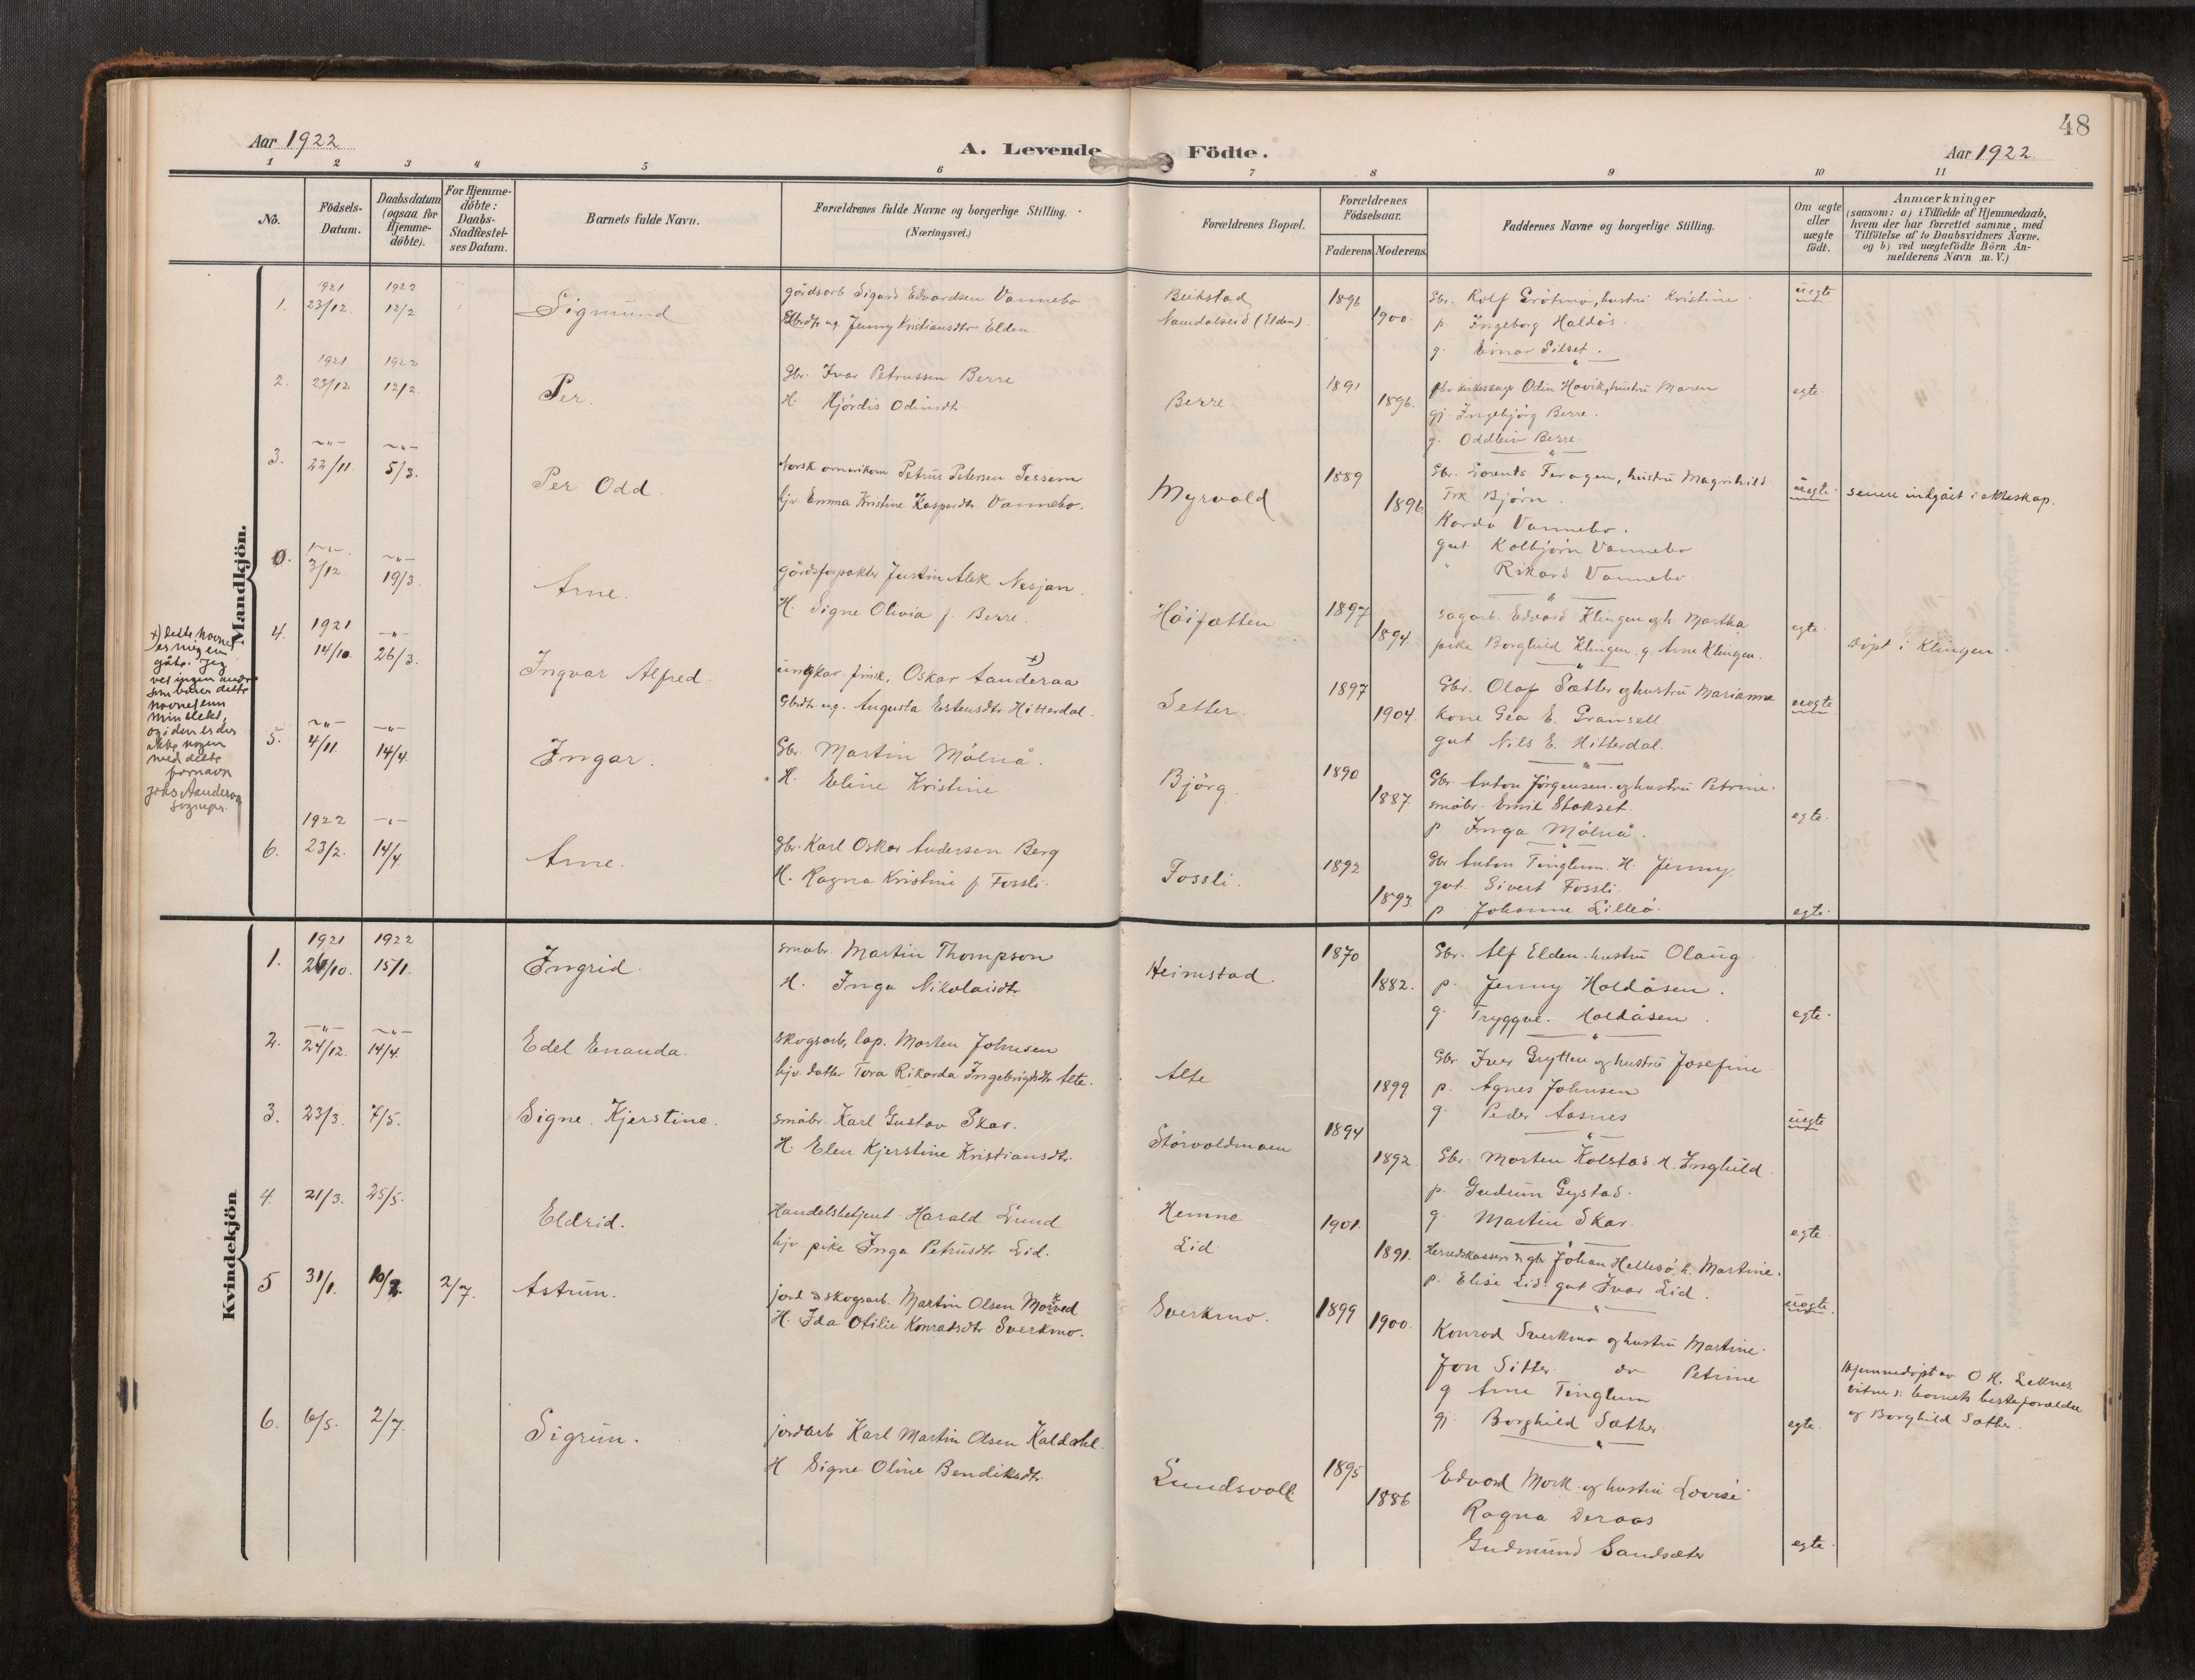 48
Aar 1922
A. Levende Födte.
Aar 1922.
1 2 3 4 5 6 7 8 9 10 11
No.
Födsels-
Datum.
Daabsdatum
(ogsaa for
Hjemme-
döbte).
For Hjemme-
döbte:
Daabs-
Stadfæstel-
ses Datum.
Barnets fulde Navn.
Forældrenes fulde Navne og borgerlige Stilling.
(Næringsvei.)
Forældrenes Bopæl.
Forældrenes
Födselsaar.
Faderens Moderens
Faddernes Navne og borgerlige Stilling.
Om ægte
eller
uægte
födt.
Anmærkninger
(saasom: a) i Tilfælde af Hjemmedaab,
hvem der har forrettet samme, med
Tilföielse af to Daabsvidners Navne,
og b) ved uægtefödte Börn An-
melderens Navn m. V.)
Mandkjön.
1. 1921 23/12. 1922 12/2 Sigmund
gårdsarb Sigurd Edvardsen Vannebo
ug. Jenny Kristiansdtr Elden
Beitstad
Namdalseid (Elden).
1896 1900.
Gbr. Rolf Grötmo, hustru Kristine
p. Ingeborg Haldås.
g. Einar Pilset.
uegte
2. 1921 23/12 1922 12/2 Per.
Gbr. Ivar Petrussen Berre
H. Hjördis Odinsdtr
Berre.
1891 1896.
Odin Havik, hustru Maren
gj. Ingebjörg Berre.
g. Oddleiv Berre.
egte.
3. 22/11. 5/3. Per Odd.
Norsk amerikaner Petrus Petersen Tessem
hjv. Emma Kristine Kaspersdtr. Vannebo.
Myrvold
1889 1896
Gbr. Lorents Feragen, hustru Magnhild
Frk Bjørn.
Karda Vannebo.
gut Kolbjörn Vannebo
" Rikard Vannebo
uegte. senere indgået i ekteskap.
0. 3/12. 19/3. Arne.
gårdsforpakter Justin Alek Nesjan.
H. Signe Olivia f. Berre.
Höifætten
1897 1894.
sagarb. Edvard Klingen og h. Martha
pike Borghild Klingen. g. Arne Klingen.
egte. Döpt i Klingen.
4. 1921 14/10. 26/3. Ingvar Alfred.
ungkar, finsk, Oskar Aanderaa x)
Gbrdtr ug. Augusta Estensdtr Hitterdal.
Setter.
1897 1904.
Gbr. Olaf Sætter og hustru Marianne
kone Gea E. Gransell
gut Nils E. Hitterdal.
uegte
x) Dette navnet
er mig en
gåte. Jeg
vet ingen andre
som bærer dette
navnet enn
min slekt,
og i den er der
ikke nogen
med dette
fornavn
Johs Aanderaa
Sognepr.
5. 4/11. 14/4. Ingar.
Gbr. Martin Mölnå.
H. Eline Kristine
Björg.
1890 1887.
Gbr. Anton Jörgensen og hustru Petrine.
småbr. Emil Stokset.
p Inga Mölnå.
egte.
6. 1922 23/2. 14/4. Arne.
Gbr. Karl Oskar Andersen Berg
H. Ragna Kristine f. Fossli.
Fossli.
1892 1893.
Gbr Anton Tinglum. H. Jenny.
gut. Sivert Fossli.
p Johanne Lilleö.
egte.
Kvindekjön
1. 1921 26/10. 1922 15/1. Ingrid.
småbr. Martin Thompson
H. Inga Nikolaisdtr
Heimstad.
1870 1882.
Gbr. Alf Elden. hustru Olaug
p. Jenny Holdåsen.
g. Tryggve. Holdåsen.
egte.
2. 24/12. 14/4. Edel Enanda.
skogsarb, lap. Morten Johnsen
hjv. datter Tora Rikarda Ingebrigtsdtr Alte.
Alte
1899
Gbr Iver Grytten og hustru Josefine
p. Agnes Johnsen
g. Peder Aasnes
uegte
3. 23/3. 7/5. Signe. Kjerstine.
småbr. Karl Gustav Skar.
H. Elen Kjerstine Kristiansdtr.
Störvoldmoen
1894 1892
Gbr. Morten Kolstad. H. Inghild.
p. Gudrun Gystad.
g. Martin Skar.
egte
4. 21/3. 25/5. Eldrid.
Handelsbetjent. Harald Lund
hjv pike Inga Petrusdtr Lid.
Hemne
Lid
1901. 1891.
Herredskasserer & gbr Johan Hellesö. h. Martine.
p. Elise Lid. gut Ivar Lid.
uegte.
5 31/1. 10/2. 2/7. Astrun.
jord & skogsarb. Martin Olsen Morked
H. Ida Otilie Konradsdtr Sverkmo.
Sverkmo.
1899 1900.
Konrad Sverkmo og hustru Martine.
Jon Sitter do Petrine
g Arne Tinglum
gj. Borghild Sæther.
egte.
Hjemmedöpt av O. H. Leknes.
vitner: barnets besteforældre
og Borghild Sæther.
6. 6/5. 2/7. Sigrun.
jordarb Karl Martin Olsen Kaldahl.
H Signe Oline Bendiksdtr
Lundsvoll
1895 1886
Edvard Mork og hustru Lovise
Ragna Deraas
Gudmund Sandsæter
egte.